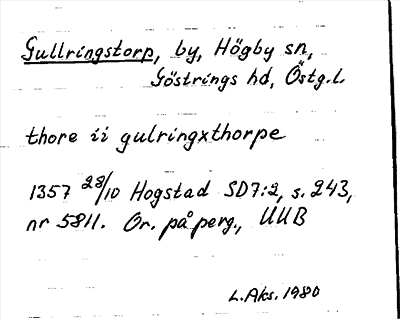 Gullringstorp, by, Högby sn,
Göstrings hd, Östg.l.
thore ii gulringxthorpe
1357 28/10 Hogstad SD7:2, s. 243,
nr 5811. Or. på perg., UUB
L.Aks. 1980